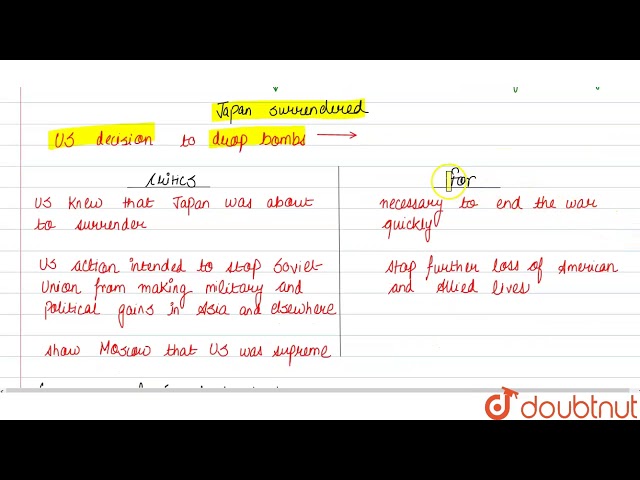 Japan surrendered
US decision to drop bombs →
critics
US knew that Japan was about
to surrender
US action intended to stop Soviet
Union from making military and
political gains in Asia and elsewhere
show Moscow that US was supreme
for
necessary to end the war
quickly
stop further loss of American
and Allied lives
doubtnut